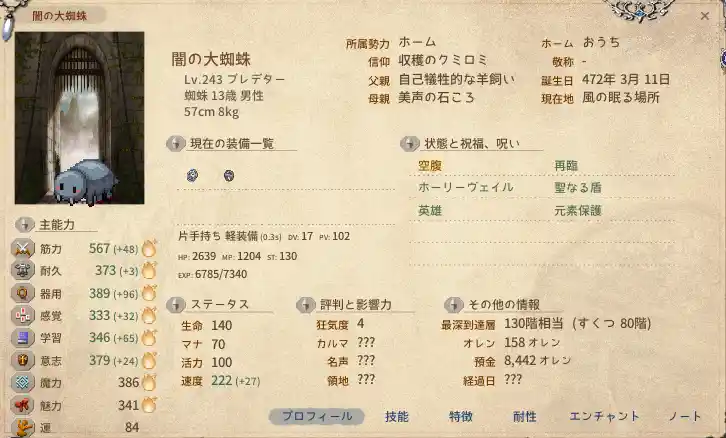 闇の大蜘蛛
闇の大蜘蛛
Lv.243 プレデター
蜘蛛 13歳 男性
57cm 8kg
所属勢力 ホーム
信仰 収穫のクミロミ
父親 自己犠牲的な羊飼い
母親 美声の石ころ
ホーム おうち
敬称 -
誕生日 472年 3月 11日
現在地 風の眠る場所
現在の装備一覧
片手持ち 軽装備 (0.3s) DV: 17 PV: 102
HP: 2639 MP: 1204 ST: 130
EXP: 6785/7340
状態と祝福、呪い
空腹 再臨
ホーリーヴェイル 聖なる盾
英雄 元素保護
主能力
筋力 567 (+48)
耐久 373 (+3)
器用 389 (+96)
感覚 333 (+32)
学習 346 (+65)
意志 379 (+24)
魔力 386
魅力 341
運 84
ステータス
生命 140
マナ 70
活力 100
速度 222 (+27)
評判と影響力
狂気度 4
カルマ ???
名声 ???
領地 ???
その他の情報
最深到達層 130階相当 (すくつ 80階)
オレン 158 オレン
預金 8,442 オレン
経過日 ???
プロフィール 技能 特徴 耐性 エンチャント ノート